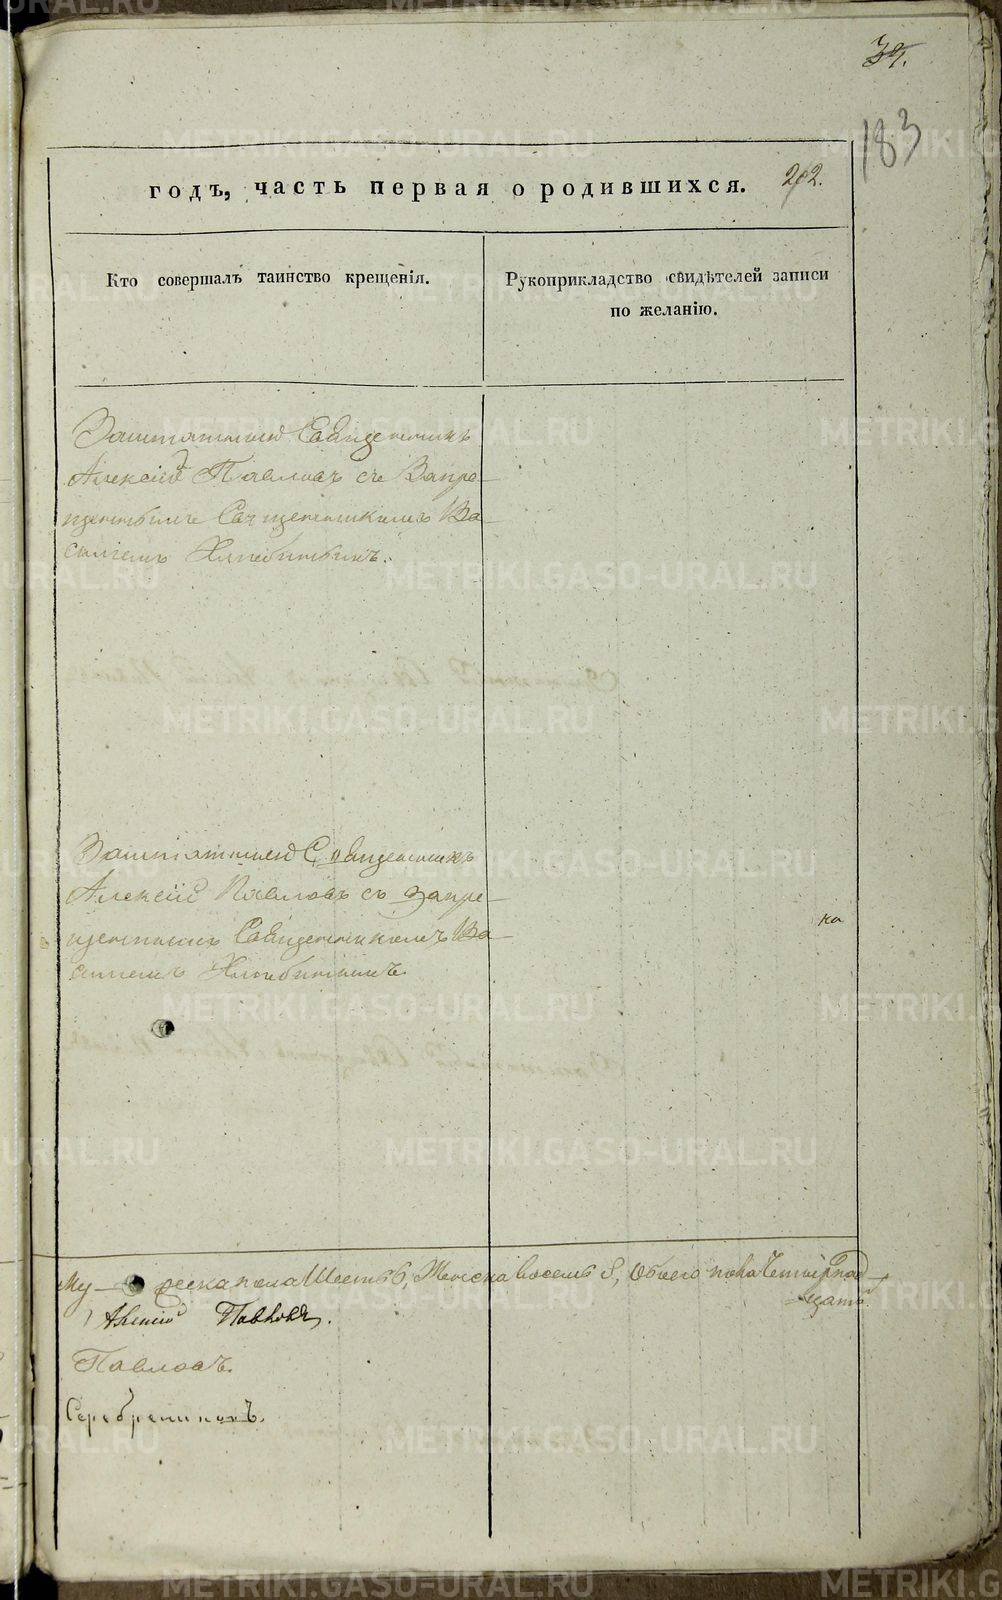 39.
183
годъ, часть первая о родившихся. 202.
Кто совершалъ таинство крещенія.
Рукоприкладство свидѣтелей записи
по желанію.
Заштатный Священникъ
Алексій Павловъ съ Запре-
щеннымъ Священникомъ Ва-
силіемъ
Заштатный Священникъ
Алексій Павловъ съ Запре-
щеннымъ Священникомъ Ва-
силіемъ
ка
Му- ческа пола Шесть 6, Женска восемь 8, Обоего пола Четырнад-
цать.
Алексій Павловъ.
Павловъ.
Серебрениковъ.
METRIKI.GASO-URAL.RU